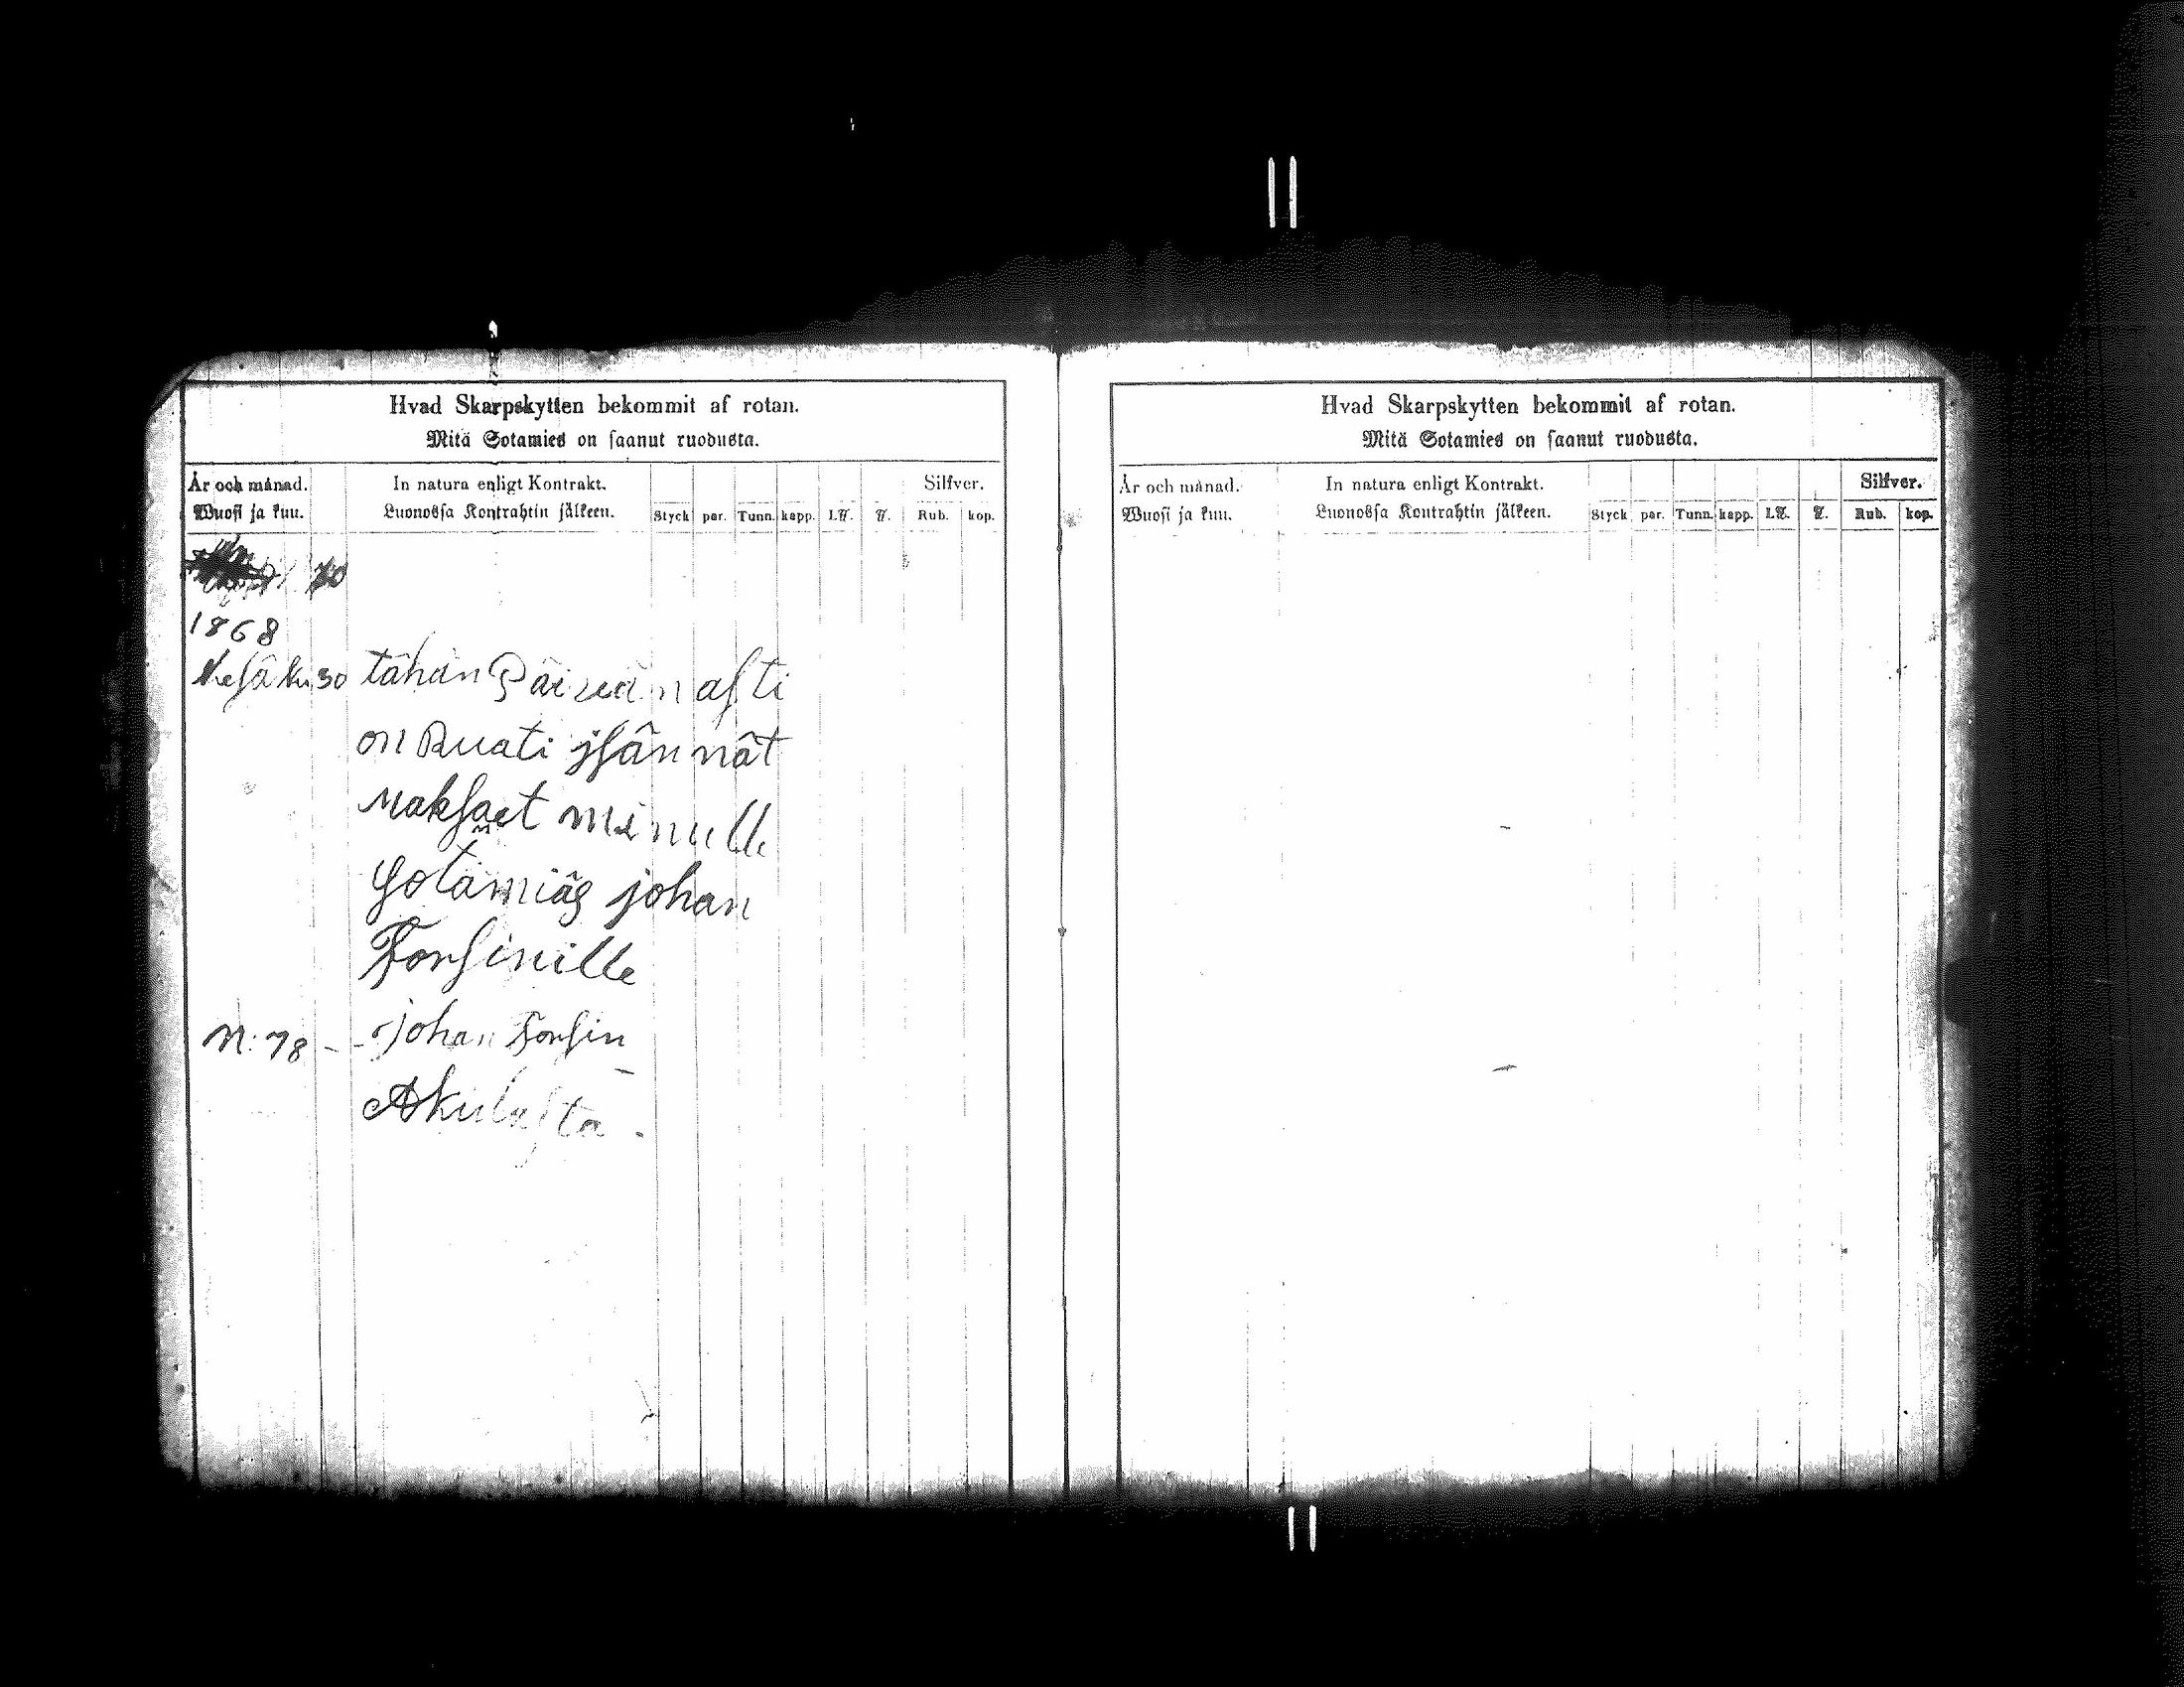 Hvad Skarpskytten bekommit af rotan.
Mitä Sotamies on saanut ruodusta.
År och månad.
Wuosi ja kuu.
In natura enligt Kontrakt.
Luonossa Kontrahtin jälkeen.
Styck par. Tunn. kapp. L℔. ℔.
Silfver.
Rub. kop.
1868
kesäku 30 tähän Päivän asti
on Ruati jsännät
maksaet minulle
Sotamiäs johan
Forsinille
N: 78 - - johan Forsin
Akulasta -
Hvad Skarpskytten bekommit af rotan.
Mitä Sotamies on saanut ruodusta.
År och månad.
Wuosi ja kuu.
In natura enligt Kontrakt.
Luonossa Kontrahtin jälkeen.
Styck par. Tunn. kapp. L℔. ℔.
Silfver.
Rub. kop.